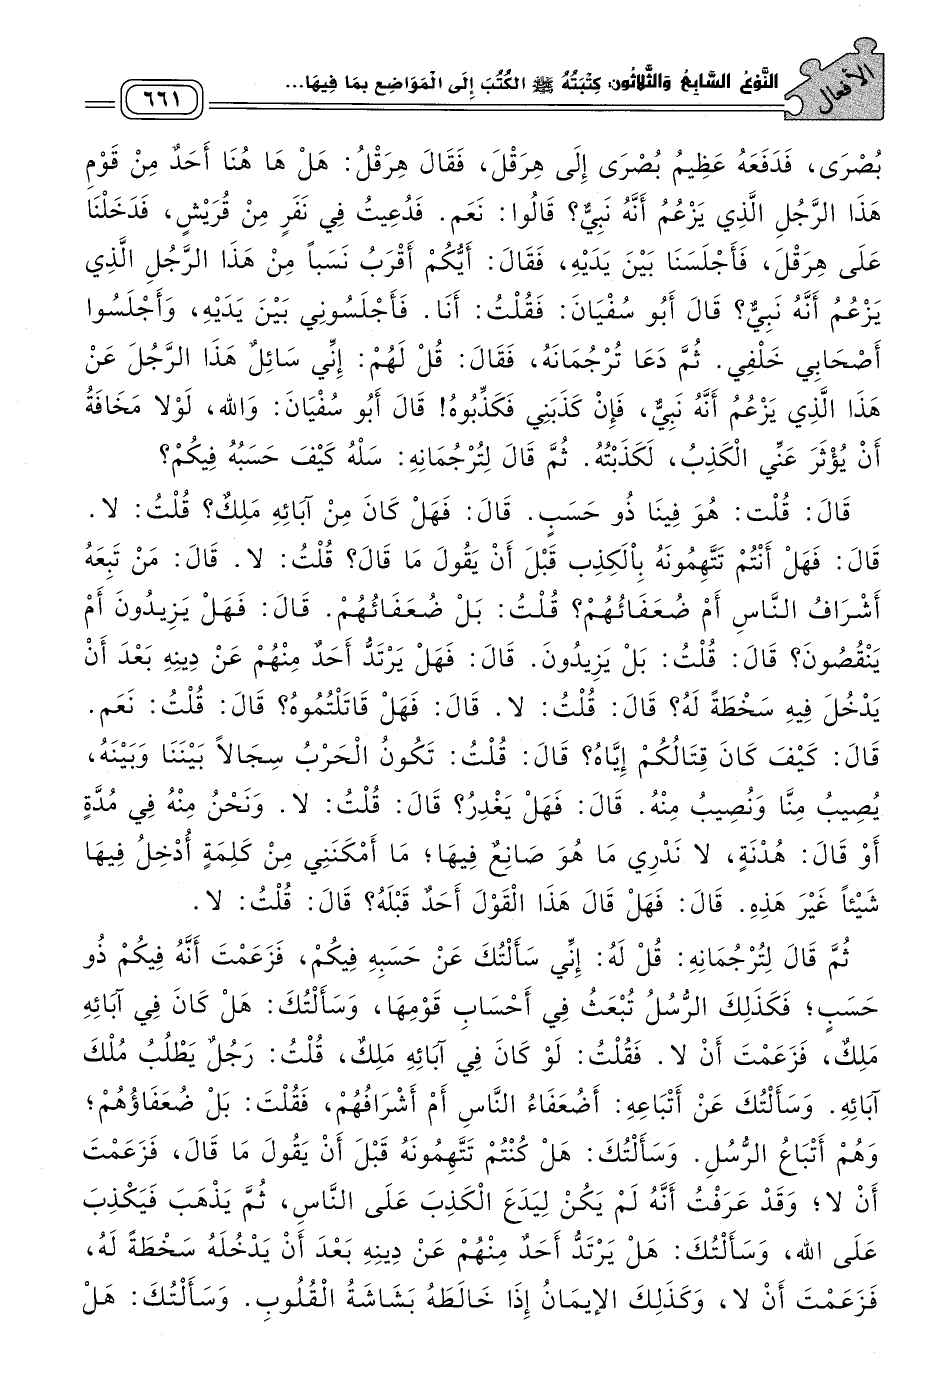 الأفعال
النَّوْعُ السَّابِعُ وَالثَّلَاثُونَ: كِتْبَتُهُ ﷺ الكُتُبَ إِلَى الْمَوَاضِعِ بِمَا فِيهَا...
٦٦١
بُصْرَى، فَدَفَعَهُ عَظِيمُ بُصْرَى إِلَى هِرَقْلَ، فَقَالَ هِرَقْلُ: هَلْ هَا هُنَا أَحَدٌ مِنْ قَوْمِ
هَذَا الرَّجُلِ الَّذِي يَزْعُمُ أَنَّهُ نَبِيٌّ؟ قَالُوا: نَعَم. فَدُعِيتُ فِي نَفَرٍ مِنْ قُرَيْشٍ، فَدَخَلْنَا
عَلَى هِرَقْلَ، فَأَجْلَسَنَا بَيْنَ يَدَيْهِ، فَقَالَ: أَيُّكُمْ أَقْرَبُ نَسَباً مِنْ هَذَا الرَّجُلِ الَّذِي
يَزْعُمُ أَنَّهُ نَبِيٌّ؟ قَالَ أَبُو سُفْيَانَ: فَقُلْتُ: أَنَا. فَأَجْلَسُونِي بَيْنَ يَدَيْهِ، وَأَجْلَسُوا
أَصْحَابِي خَلْفِي. ثُمَّ دَعَا تُرْجُمَانَهُ، فَقَالَ: قُلْ لَهُمْ: إِنِّي سَائِلٌ هَذَا الرَّجُلَ عَنْ
هَذَا الَّذِي يَزْعُمُ أَنَّهُ نَبِيٌّ، فَإِنْ كَذَبَنِي فَكَذِّبُوهُ! قَالَ أَبُو سُفْيَانَ: وَالله، لَوْلا مَخَافَةُ
أَنْ يُؤْثَرَ عَنِّي الْكَذِبُ، لَكَذَبْتُهُ. ثُمَّ قَالَ لِتُرْجُمَانِهِ: سَلْهُ كَيْفَ حَسَبُهُ فِيكُمْ؟
قَالَ: قُلْت: هُوَ فِينَا ذُو حَسَبٍ. قَالَ: فَهَلْ كَانَ مِنْ آبَائِهِ مَلِكٌ؟ قُلْتُ: لا.
قَالَ: فَهَلْ أَنْتُمْ تَتَّهِمُونَهُ بِالْكِذِبِ قَبْلَ أَنْ يَقُولَ مَا قَالَ؟ قُلْتُ: لا. قَالَ: مَنْ تَبِعَهُ
أَشْرَافُ النَّاسِ أَمْ ضُعَفَائُهُمْ؟ قُلْتُ: بَلْ ضُعَفَائُهُمْ. قَالَ: فَهَلْ يَزِيدُونَ أَمْ
يَنْقُصُونَ؟ قَالَ: قُلْتُ: بَلْ يَزِيدُونَ. قَالَ: فَهَلْ يَرْتَدُّ أَحَدٌ مِنْهُمْ عَنْ دِينِهِ بَعْدَ أَنْ
يَدْخُلَ فِيهِ سَخْطَةً لَهُ؟ قَالَ: قُلْتُ: لا. قَالَ: فَهَلْ قَاتَلْتُمُوهُ؟ قَالَ: قُلْتُ: نَعَم.
قَالَ: كَيْفَ كَانَ قِتَالُكُمْ إِيَّاهُ؟ قَالَ: قُلْتُ: تَكُونُ الْحَرْبُ سِجَالاً بَيْنَنَا وَبَيْنَهُ،
يُصِيبُ مِنَّا وَنُصِيبُ مِنْهُ. قَالَ: فَهَلْ يَغْدِرُ؟ قَالَ: قُلْتُ: لا. وَنَحْنُ مِنْهُ فِي مُدَّةٍ
أَوْ قَالَ: هُدْنَةٍ، لا نَدْرِي مَا هُوَ صَانِعٌ فِيهَا؛ مَا أَمْكَنَنِي مِنْ كَلِمَةٍ أُدْخِلُ فِيهَا
شَيْئاً غَيْرَ هَذِهِ. قَالَ: فَهَلْ قَالَ هَذَا الْقَوْلَ أَحَدٌ قَبْلَهُ؟ قَالَ: قُلْتُ: لا.
ثُمَّ قَالَ لِتُرْجُمَانِهِ: قُلْ لَهُ: إِنِّي سَأَلْتُكَ عَنْ حَسَبِهِ فِيكُم، فَزَعَمْتَ أَنَّهُ فِيكُم ذُو
حَسَبٍ؛ فَكَذَلِكَ الرُّسُلُ تُبْعَثُ فِي أَحْسَابِ قَوْمِهَا، وَسَأَلْتُكَ: هَلْ كَانَ فِي آبَائِهِ
مَلِكٌ، فَزَعَمْتَ أَنْ لا. فَقُلْتُ: لَوْ كَانَ فِي آبَائِهِ مَلِكٌ، قُلْتُ: رَجُلٌ يَطْلُبُ مُلْكَ
آبَائِهِ. وَسَأَلْتُكَ عَنْ أَتْبَاعِهِ: أَضُعَفَاءُ النَّاسِ أَمْ أَشْرَافُهُمْ، فَقُلْتَ: بَلْ ضُعَفَاؤُهُمْ؛
وَهُمْ أَتْبَاعُ الرُّسُلِ. وَسَأَلْتُكَ: هَلْ كُنْتُمْ تَتَّهِمُونَهُ قَبْلَ أَنْ يَقُولَ مَا قَالَ، فَزَعَمْتَ
أَنْ لا؛ وَقَدْ عَرَفْتُ أَنَّهُ لَمْ يَكُنْ لِيَدَعَ الْكَذِبَ عَلَى النَّاسِ، ثُمَّ يَذْهَبَ فَيَكْذِبَ
عَلَى الله، وَسَأَلْتُكَ: هَلْ يَرْتَدُّ أَحَدٌ مِنْهُمْ عَنْ دِينِهِ بَعْدَ أَنْ يَدْخُلَهُ سَخْطَةً لَهُ،
فَزَعَمْتَ أَنْ لا، وَكَذَلِكَ الإيمَانُ إِذَا خَالَطَهُ بَشَاشَةُ الْقُلُوبِ. وَسَأَلْتُكَ: هَلْ